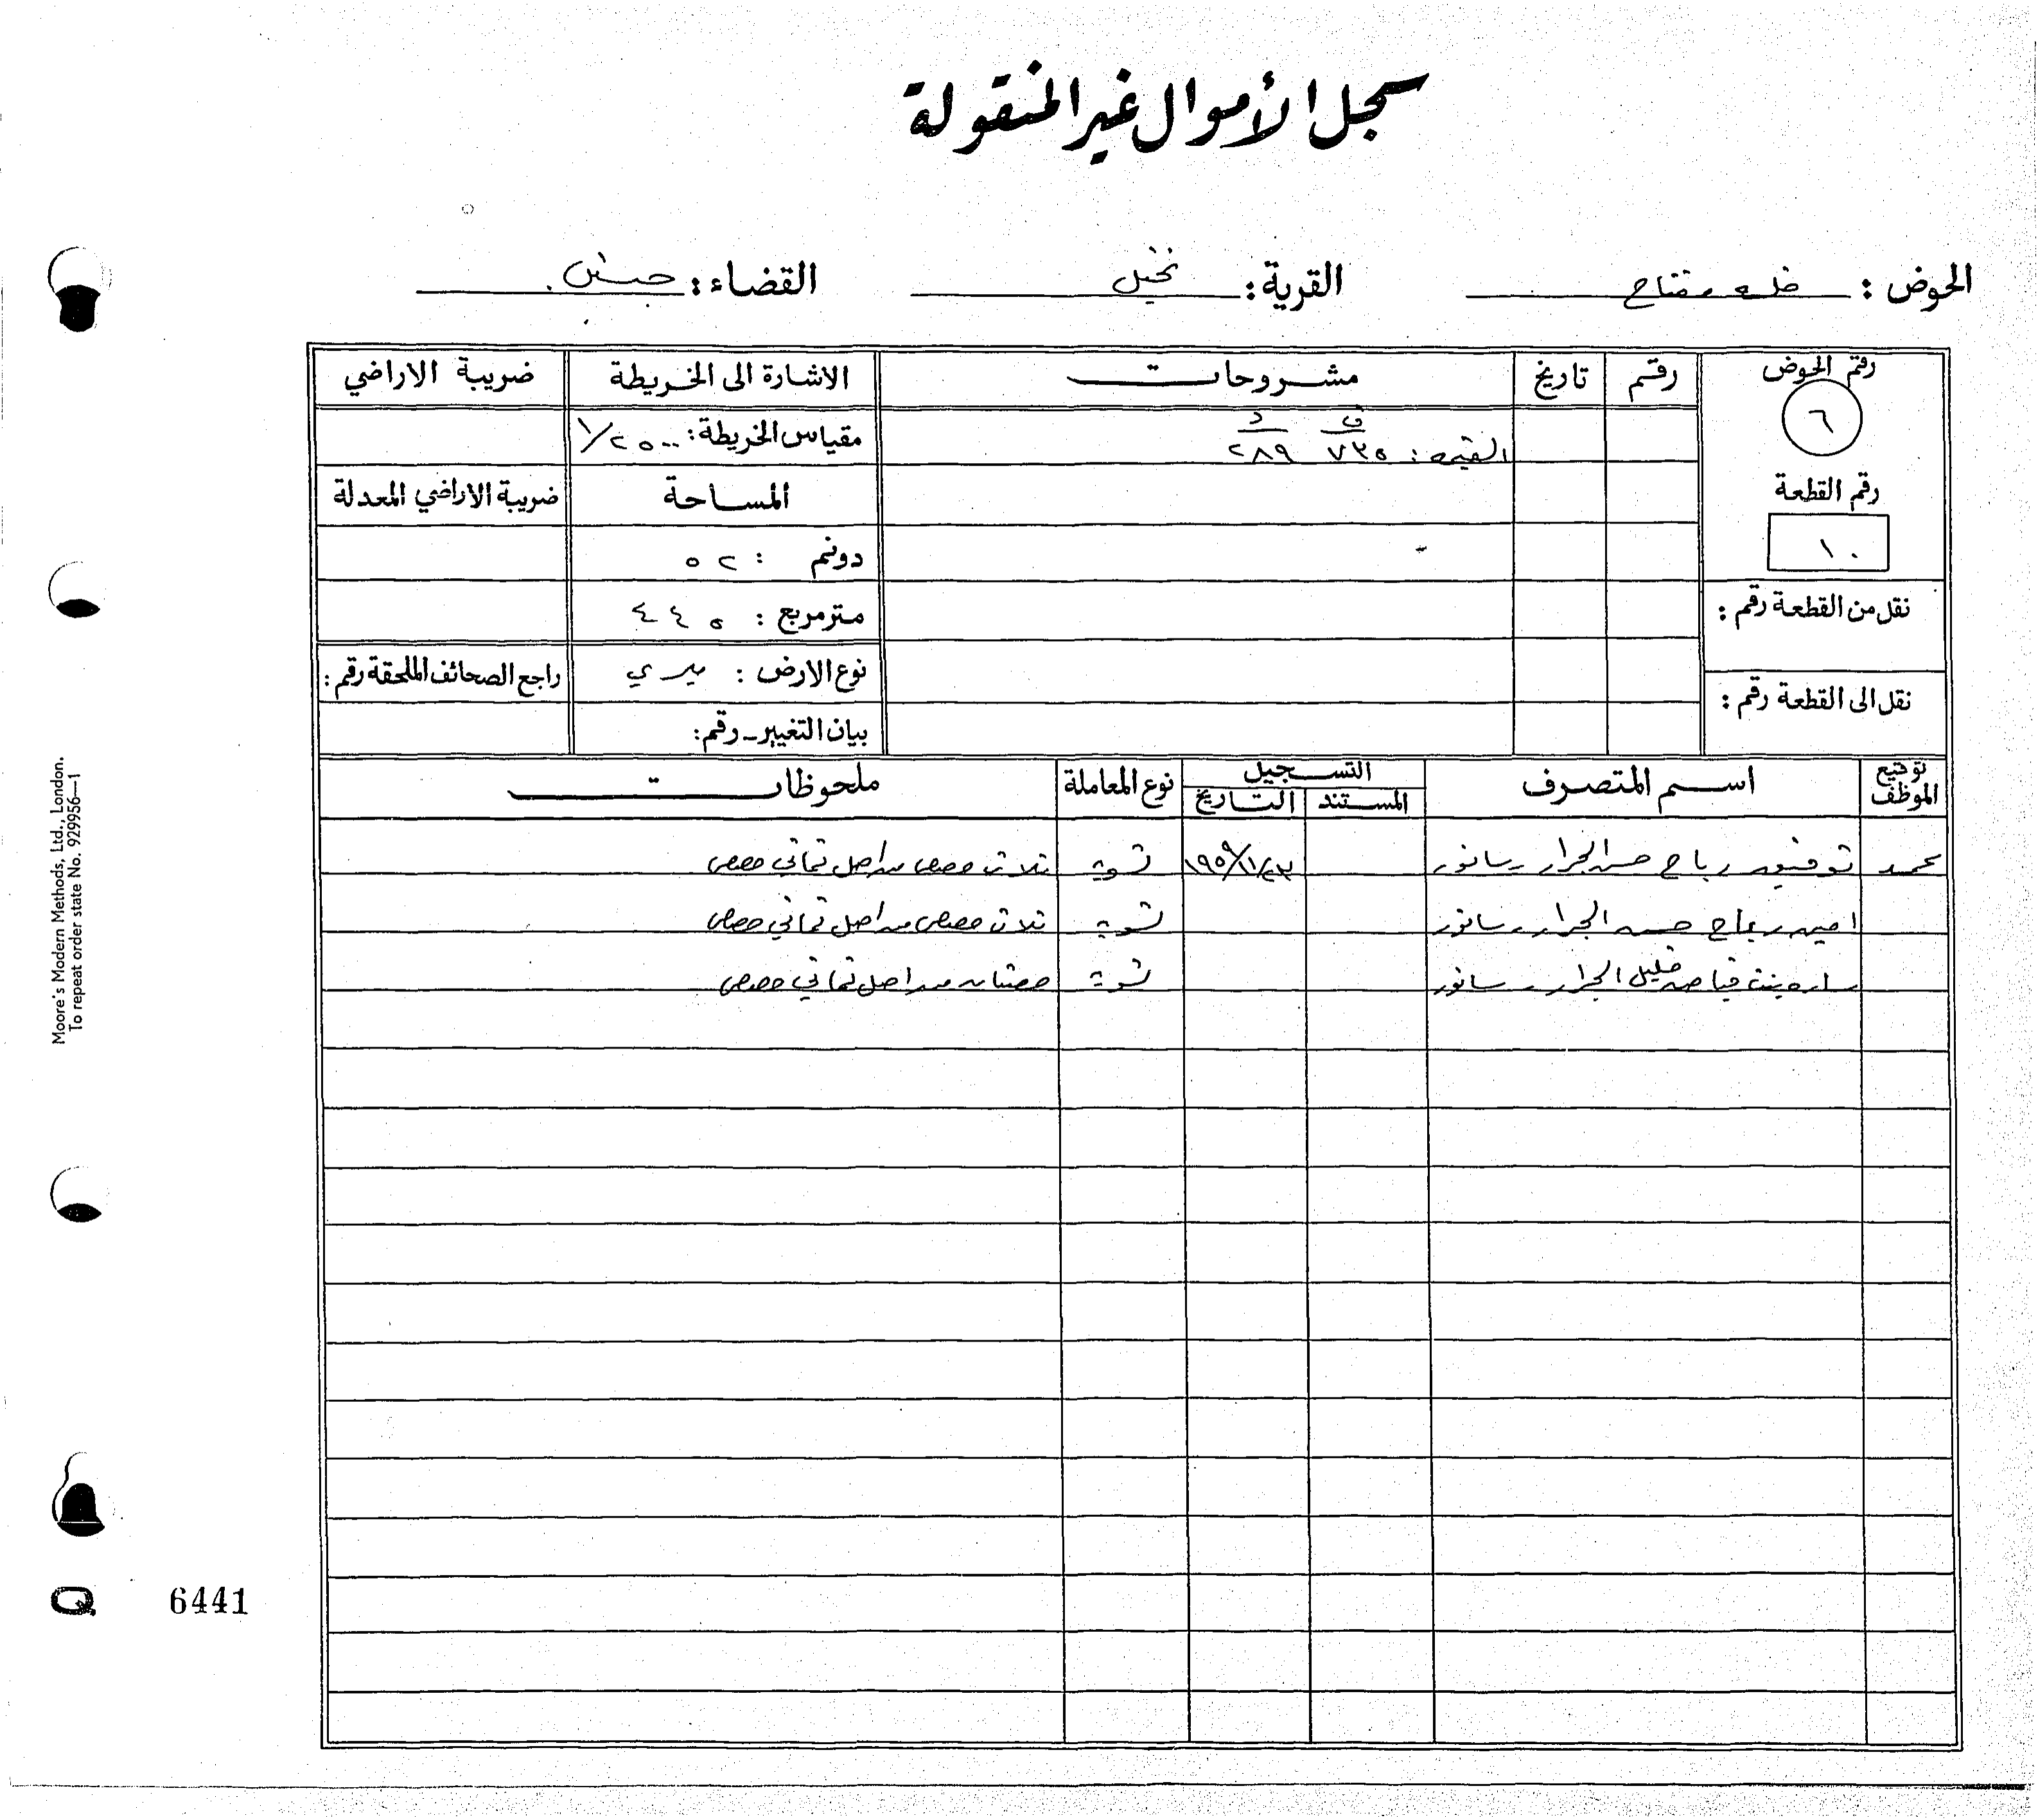 سجل الأموال غير المنقولة
الحوض : خلة مفتاح القرية : نخيل القضاء : جنين
رقم الحوض رقم تاريخ مشروحات الاشارة الى الخريطة ضريبة الاراضي
٦
ف د
القيمة : ٧٣٥ ٢٨٩
مقياس الخريطة : ١/٢٥٠٠
رقم القطعة
١٠
المساحة ضريبة الاراضي المعدلة
دونم : ٥٢
متر مربع : ٤٤٥
نقل من القطعة رقم :
نوع الارض : ميري راجع الصحائف الملحقة رقم :
نقل الى القطعة رقم :
بيان التغيير - رقم :
توقيع الموظف اسم المتصرف التسجيل نوع المعاملة ملحوظات
المستند التاريخ
محمد توفيق رباح حسن الجرار - سانور تسوية ثلاث حصص من اصل ثماني حصص
امين رباح حسن الجرار - سانور تسوية ثلاث حصص من اصل ثماني حصص
ساره بنت خليل الجرار - سانور تسوية حصتان من اصل ثماني حصص
Moore's Modern Methods, Ltd., London.
To repeat order state No. 929956—1
Q 6441